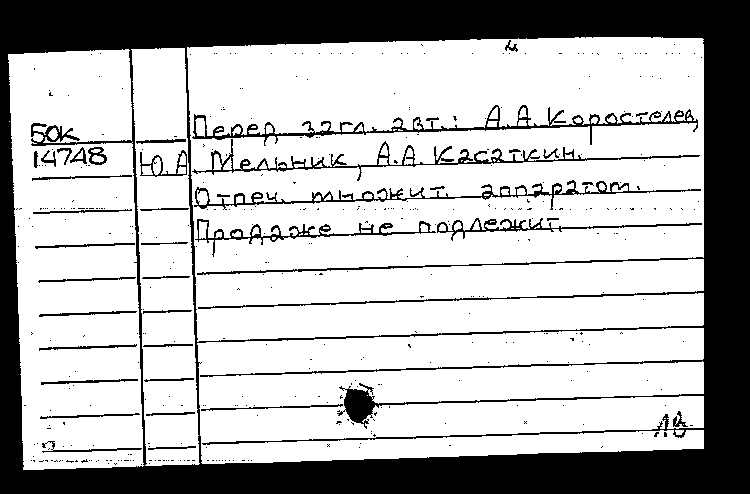 50К
14748
Перед загл. авт.: А.А. Коростелев,
Ю.А. Мельник, А.А. Касаткин.
Отпеч. множит. аппаратом.
Продаже не подлежит.